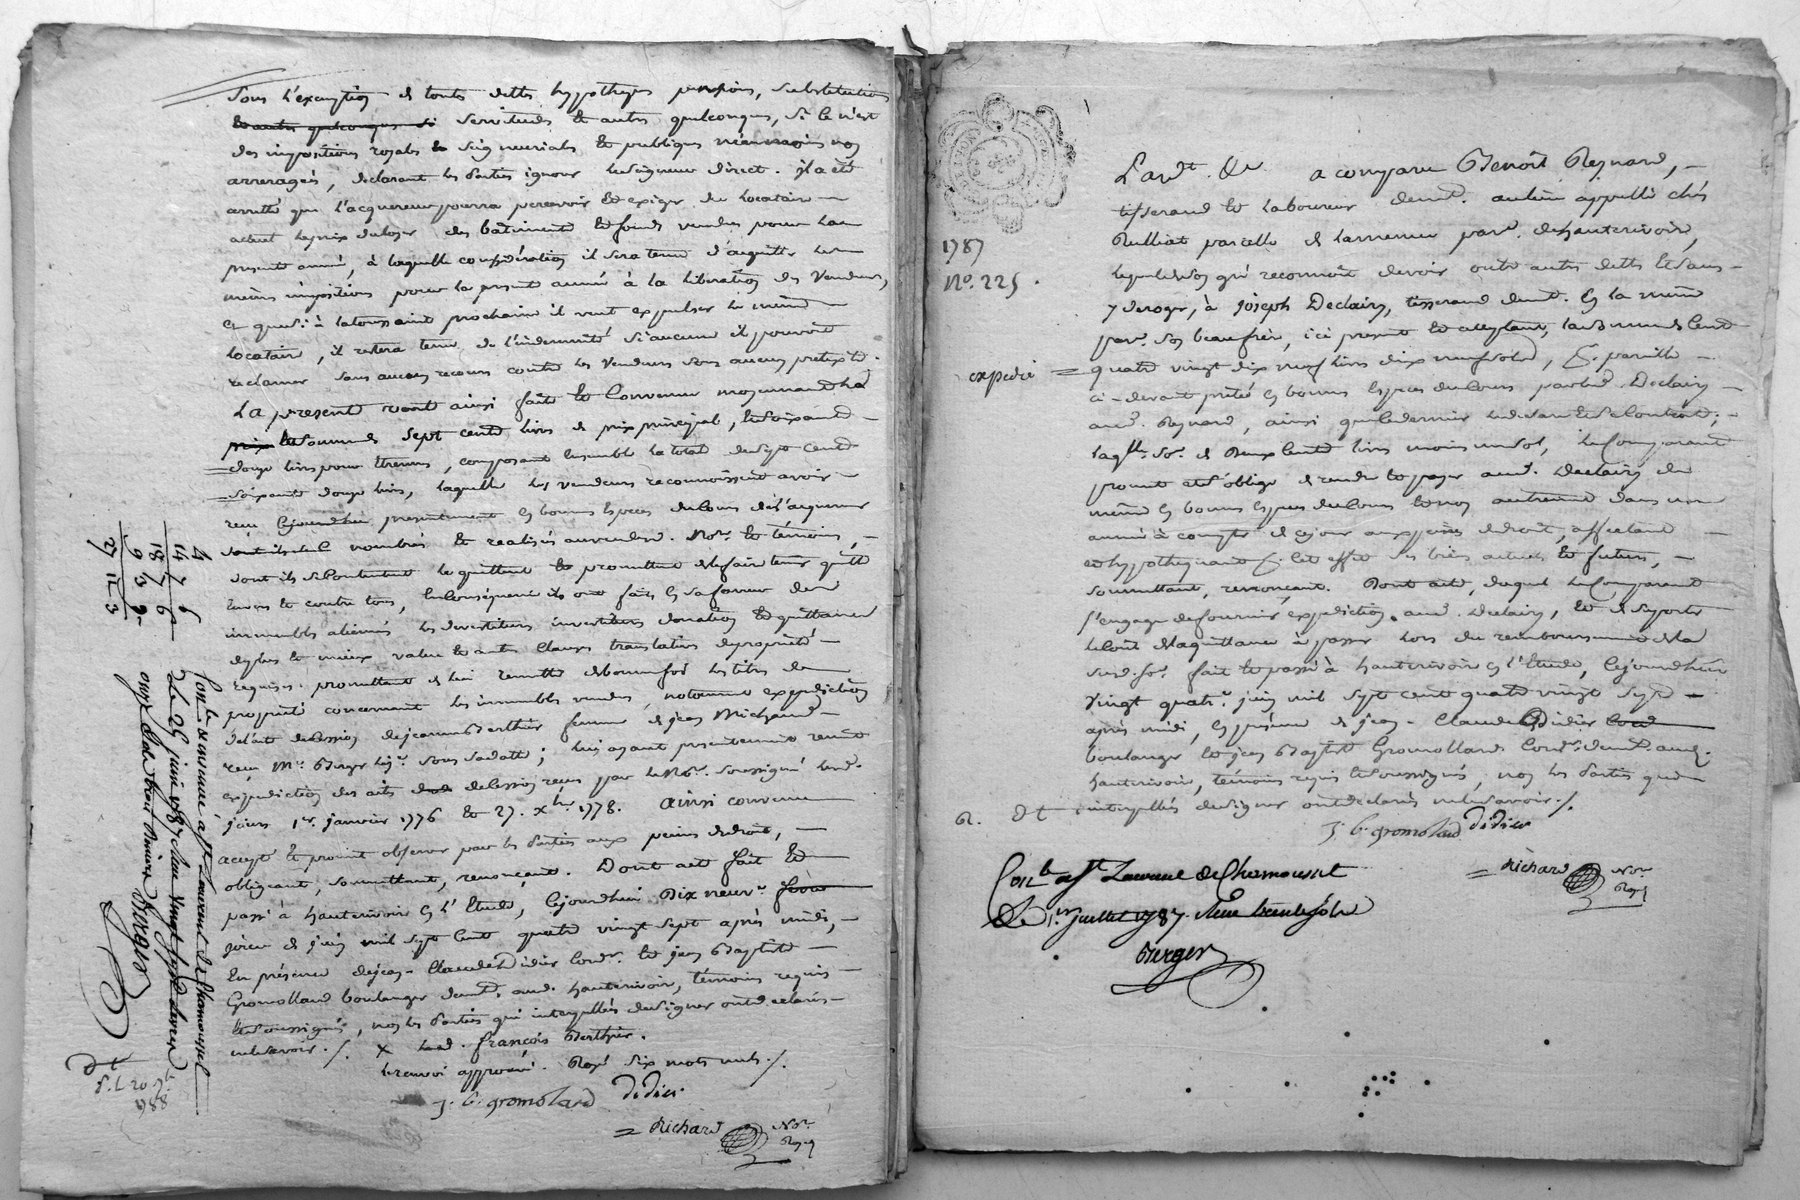 Sous l'exemption de toutes dettes hypotheques pensions, substitutions
et autres quelconques si servitudes et autres quelconques, si ce n'est
des impositions royales et seigneuriales et publiques néanmoins non
arreragés, declarant les parties ignorer le seigneur direct. il a été
arretté que l'acquereur pourra percevoir et exiger du locataire
actuel le prix du loyer des batiments et fonds vendus pour la
presente année, à laquelle considération il sera tenu d'acquitter les
mêmes impositions pour la presente année à la libération des vendeurs,
et que si à la toussaint prochaine il veut expulser le même
locataire, il restera tenu de l'indemnité si aucune il pouvoit
reclamer sans aucun recours contre les vendeurs sous aucun pretexte.
La presente vente ainsi faite et convenue moyennant la
prix et somme de sept cents livres de prix principal, et soixante
douze livres pour étrennes, composant ensemble la total de sept cents
soixante douze livres, laquelle les vendeurs reconnoissent avoir
reçu cejourdhui presentement en bonnes especes du cours de l'acquereur
nombrés et realisés au vu desd. No.re et témoins,
dont ils se contentent le quittent et promettent le faire tenir quitte
envers et contre tous, en conséquence ils ont fait en sa faveur des
immeubles alienés les devestitures investitures donation et quittance
de plus et mieux value et autres clauses translatives de propriété
requises. promettant de lui remettre de bonne foi les titres de
propriété concernant les immeubles vendus, notamment expedition
de l'acte de cession de jeanne Berthier femme de jean Michaud
reçu M.e Berger les jr. sous sa datte; lui ayant presentement remit
expedition des actes de cession reçus par le No.re soussigné les
jours 1.er janvier 1776 et 27. X.bre 1778. ainsi convenu
accepté et promit observer par les parties aux peines de droit,
obligeant, soumettant, renonçant. Dont acte fait et
passé à hauterivoire en l'Etude, cejourdhui Dix neuv.e
jour de juin mil sept cent quatre vingt sept après midi,
En présence de jean-Claude Didier cord.r et jean Baptiste
Gromollard boulanger dem.t aud. hauterivoire, témoins requis
et soussignés, non les parties qui interpellées de signer ont declarés
ne le savoir ./. x led. françois Berthier.
le renvoi approuvé. Rayé six mots nuls ./.
J. b. gromolard Didier
Richard No.re Roy.
4
14 7 6
18 7 6
9 3 9
27 11 3
Con.lé de rumeur a S.t Laurent de Chamousset
Le 25 juin 1787 Reçu Vingt sept livres
onze sols trois deniers Berger
D t
S. L. 20 7.bre
1788
1787
N.o 225.
expedié
Lan d.t &c a comparu Benoît Reynard,
tisserand et laboureur dem.t au lieu appellé chés
Rulliat parcelle de Larnerieu par.e de hauterivoire,
lequel de son gré reconnoit devoir outre autres dettes et sans
y deroger, à Joseph Declairy, tisserand dem.t en la même
par.e son beaufrère, ici present et acceptant, la somme de cent
quatre vingt dix neuf livres dix neuf sols, p. pareille
ci-devant prêté en bonnes especes du cours par led. Declairy
aud. Reynard, ainsi que le dernier le declare et se contente;
laq.lle so.e de Deux cents livres moins un sol, le Comparant
promet et s'oblige de rendre et payer aud. Declairy de
même en bonnes especes du cours et non autrement dans une
année à compter de ce jour aux peines de droit, affectant
et hypothequant p. cet effet ses biens actuels et futurs,
soumettant, renonçant. Dont acte, duquel le Comparant
s'engage de fournir expedition aud. Declairy, et de suporter
le coût de la quittance à passer lors du remboursement de la
susd. so.e fait et passé à hauterivoire en l'Etude, cejourdhui
vingt quatr.e juin mil sept cent quatre vingt sept
après midi, en présence de jean-Claude Didier cord
boulanger et jean Baptiste Gromollard cord.r dem.t aud.
hauterivoire, témoins requis et soussignés, non les parties qui
interpellés de signer ont declarés ne le savoir ./.
R. D t
J. b. gromolard Didier
Richard No.re Roy.
Con.lé a S.t Laurent de Chamousset
Le 1.er Juillet 1787. Reçu trente sols
Berger